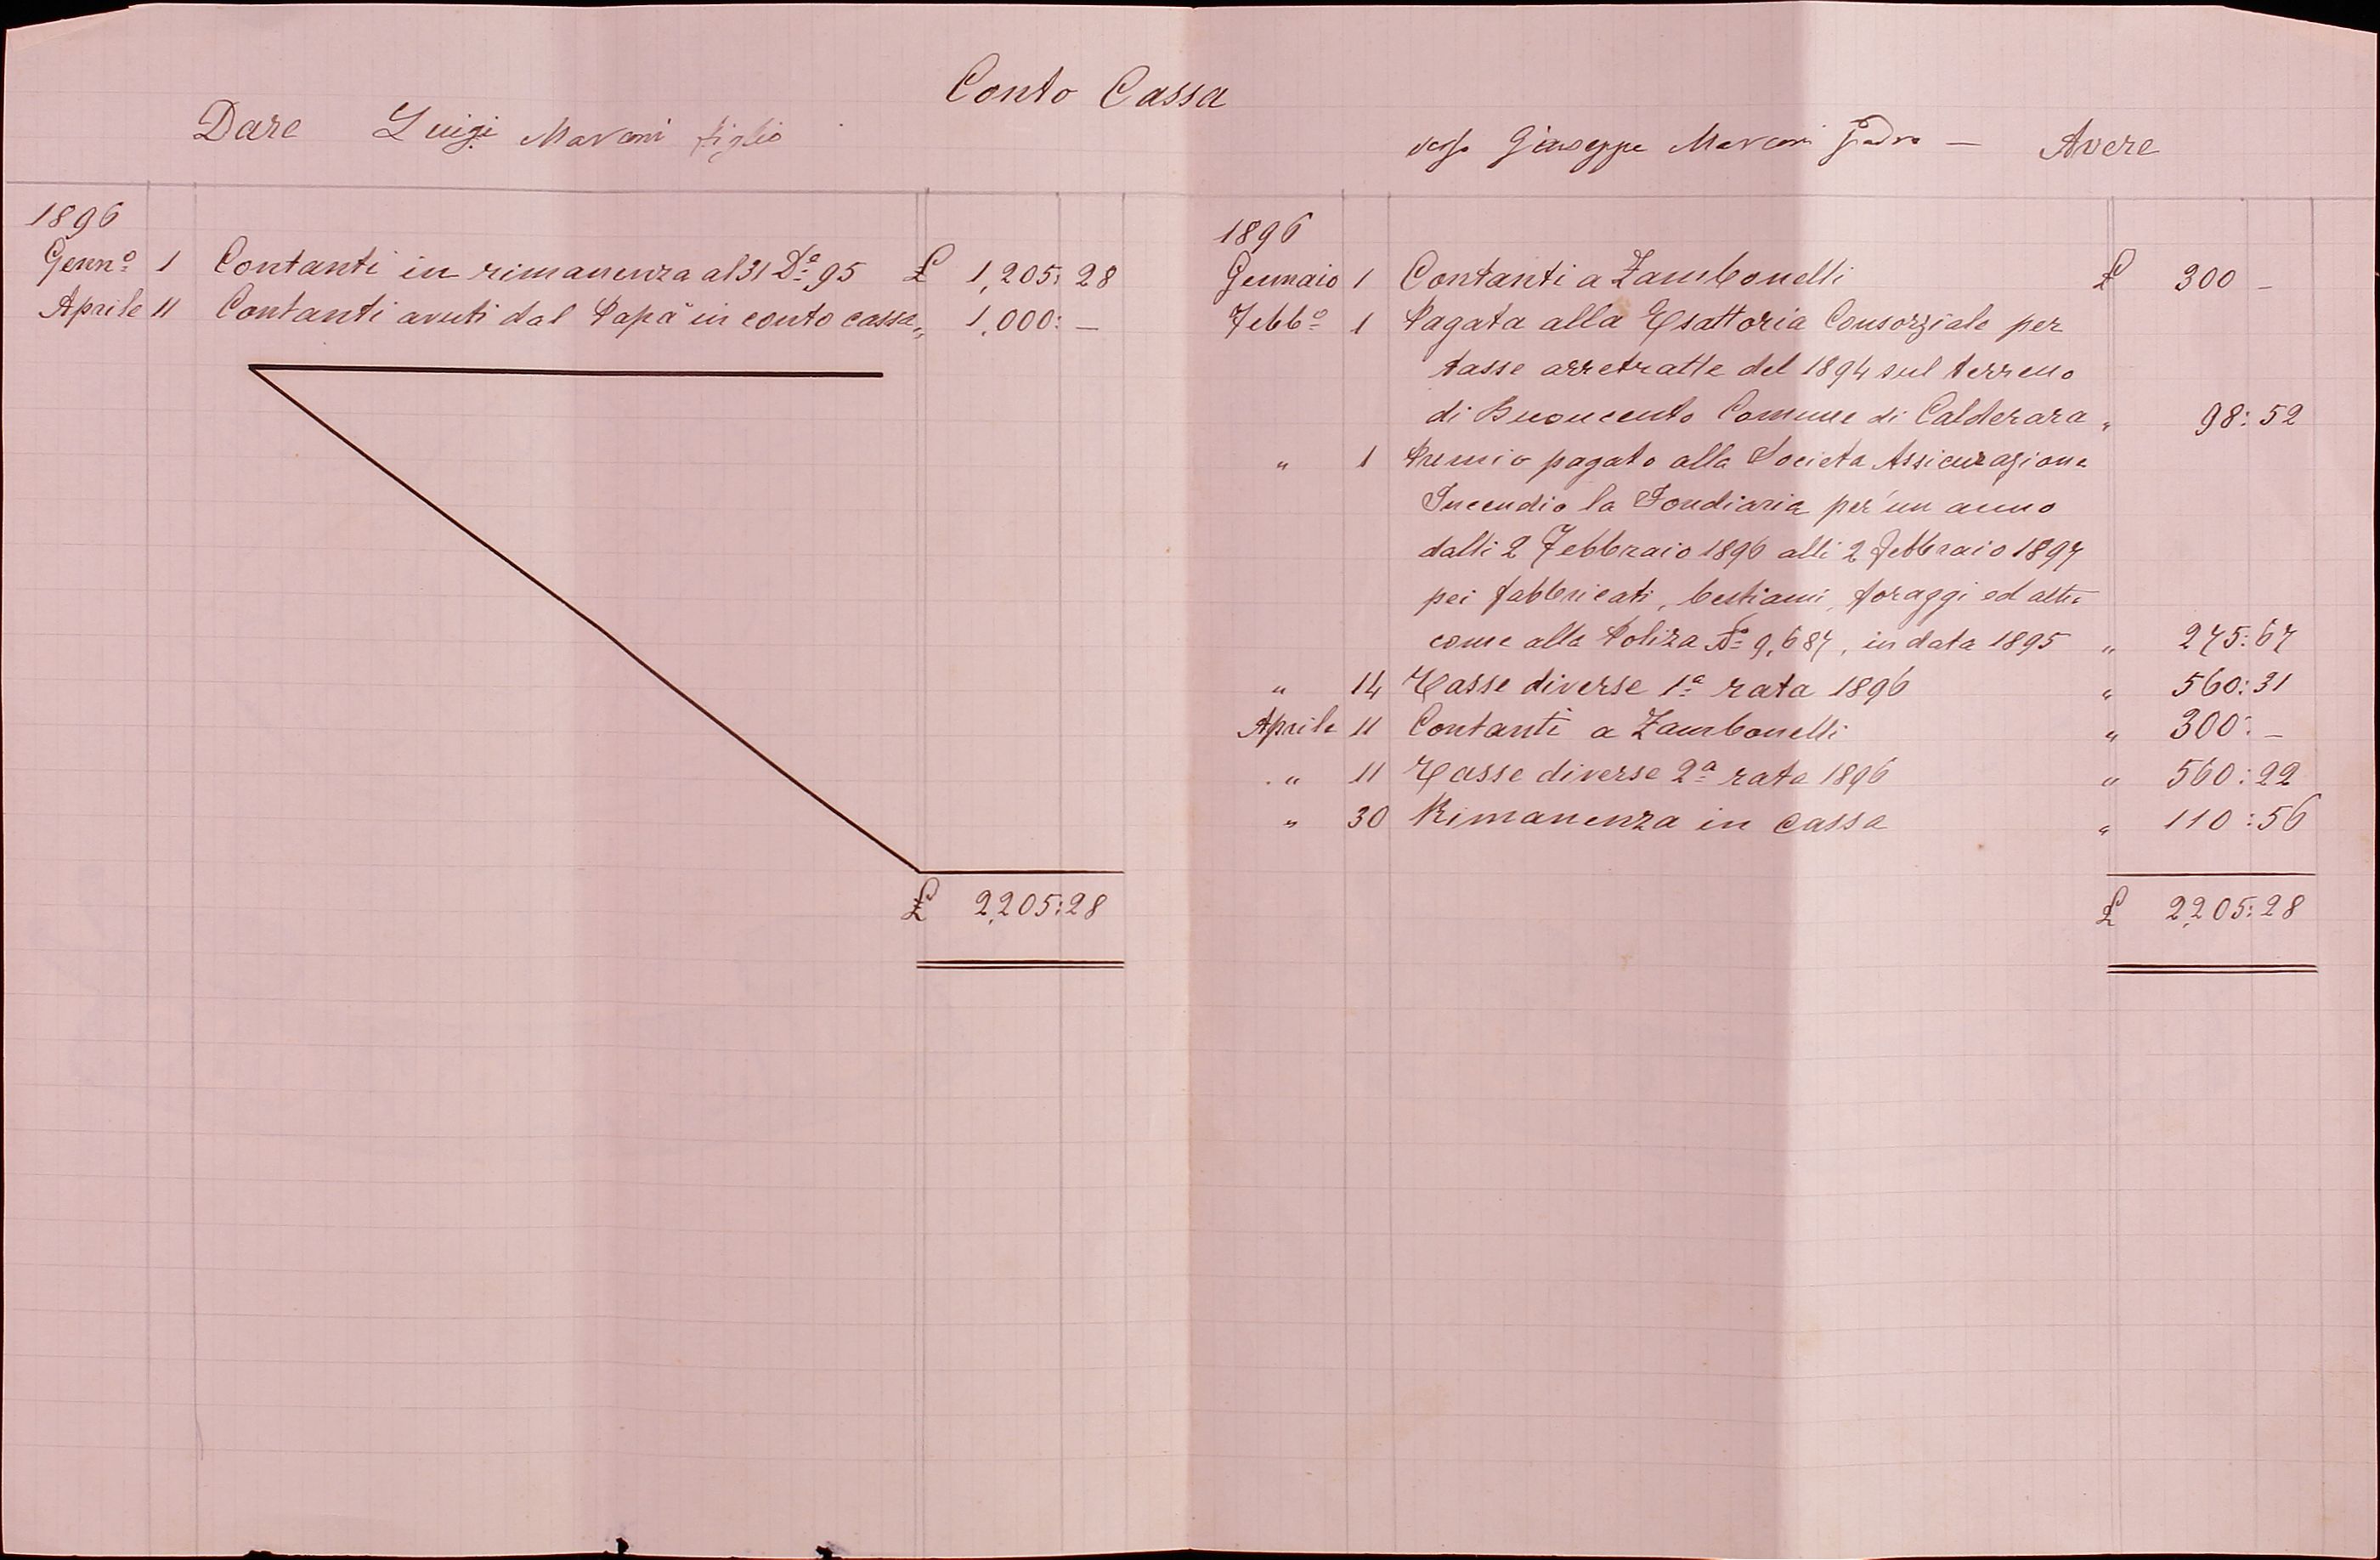 Conto Cassa
Dare Luigi Marconi figlio
1896
Genn.º 1 Contanti in rimanenza al 31 D.e 95 £ 1,205: 28
Aprile 11 Contanti avuti dal Papà in conto cassa „ 1,000: —
£ 2,205:28
verso Giuseppe Marconi Padre — Avere
1896
Gennaio 1 Contanti a Zambonelli £ 300 —
Febb.º 1 Pagata alla Esattoria Consorziale per
tasse arretratte del 1894 sul terreno
di Buonconvento Comune di Calderara „ 98: 52
„ 1 Premio pagato alla Società Assicurazione
Incendio la Fondiaria per un anno
dalli 2 Febbraio 1896 alli 2 febbraio 1897
pei fabbricati, bestiami, foraggi ed altro
come alla Poliza N.º 9,687, in data 1895 „ 275: 67
„ 14 Tasse diverse 1.ª rata 1896 „ 560: 31
Aprile 11 Contanti a Zambonelli „ 300: —
„ 11 Tasse diverse 2.ª rata 1896 „ 560: 22
„ 30 Rimanenza in cassa „ 110: 56
£ 2,205: 28